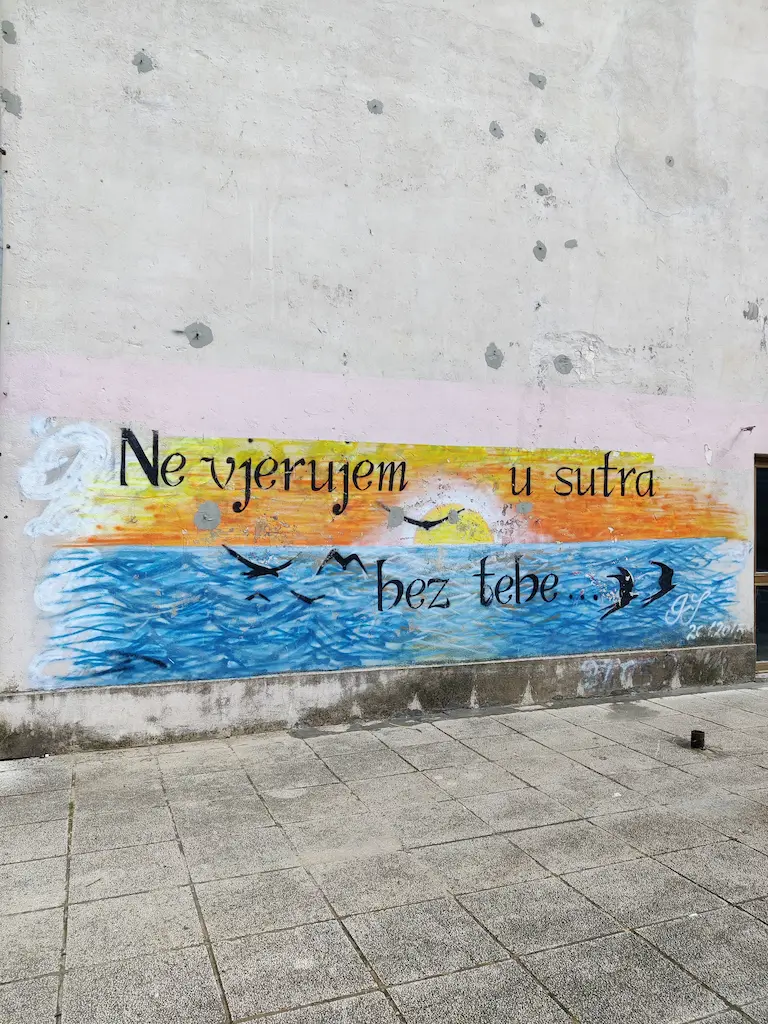 Ne vjerujem u sutra
bez tebe...